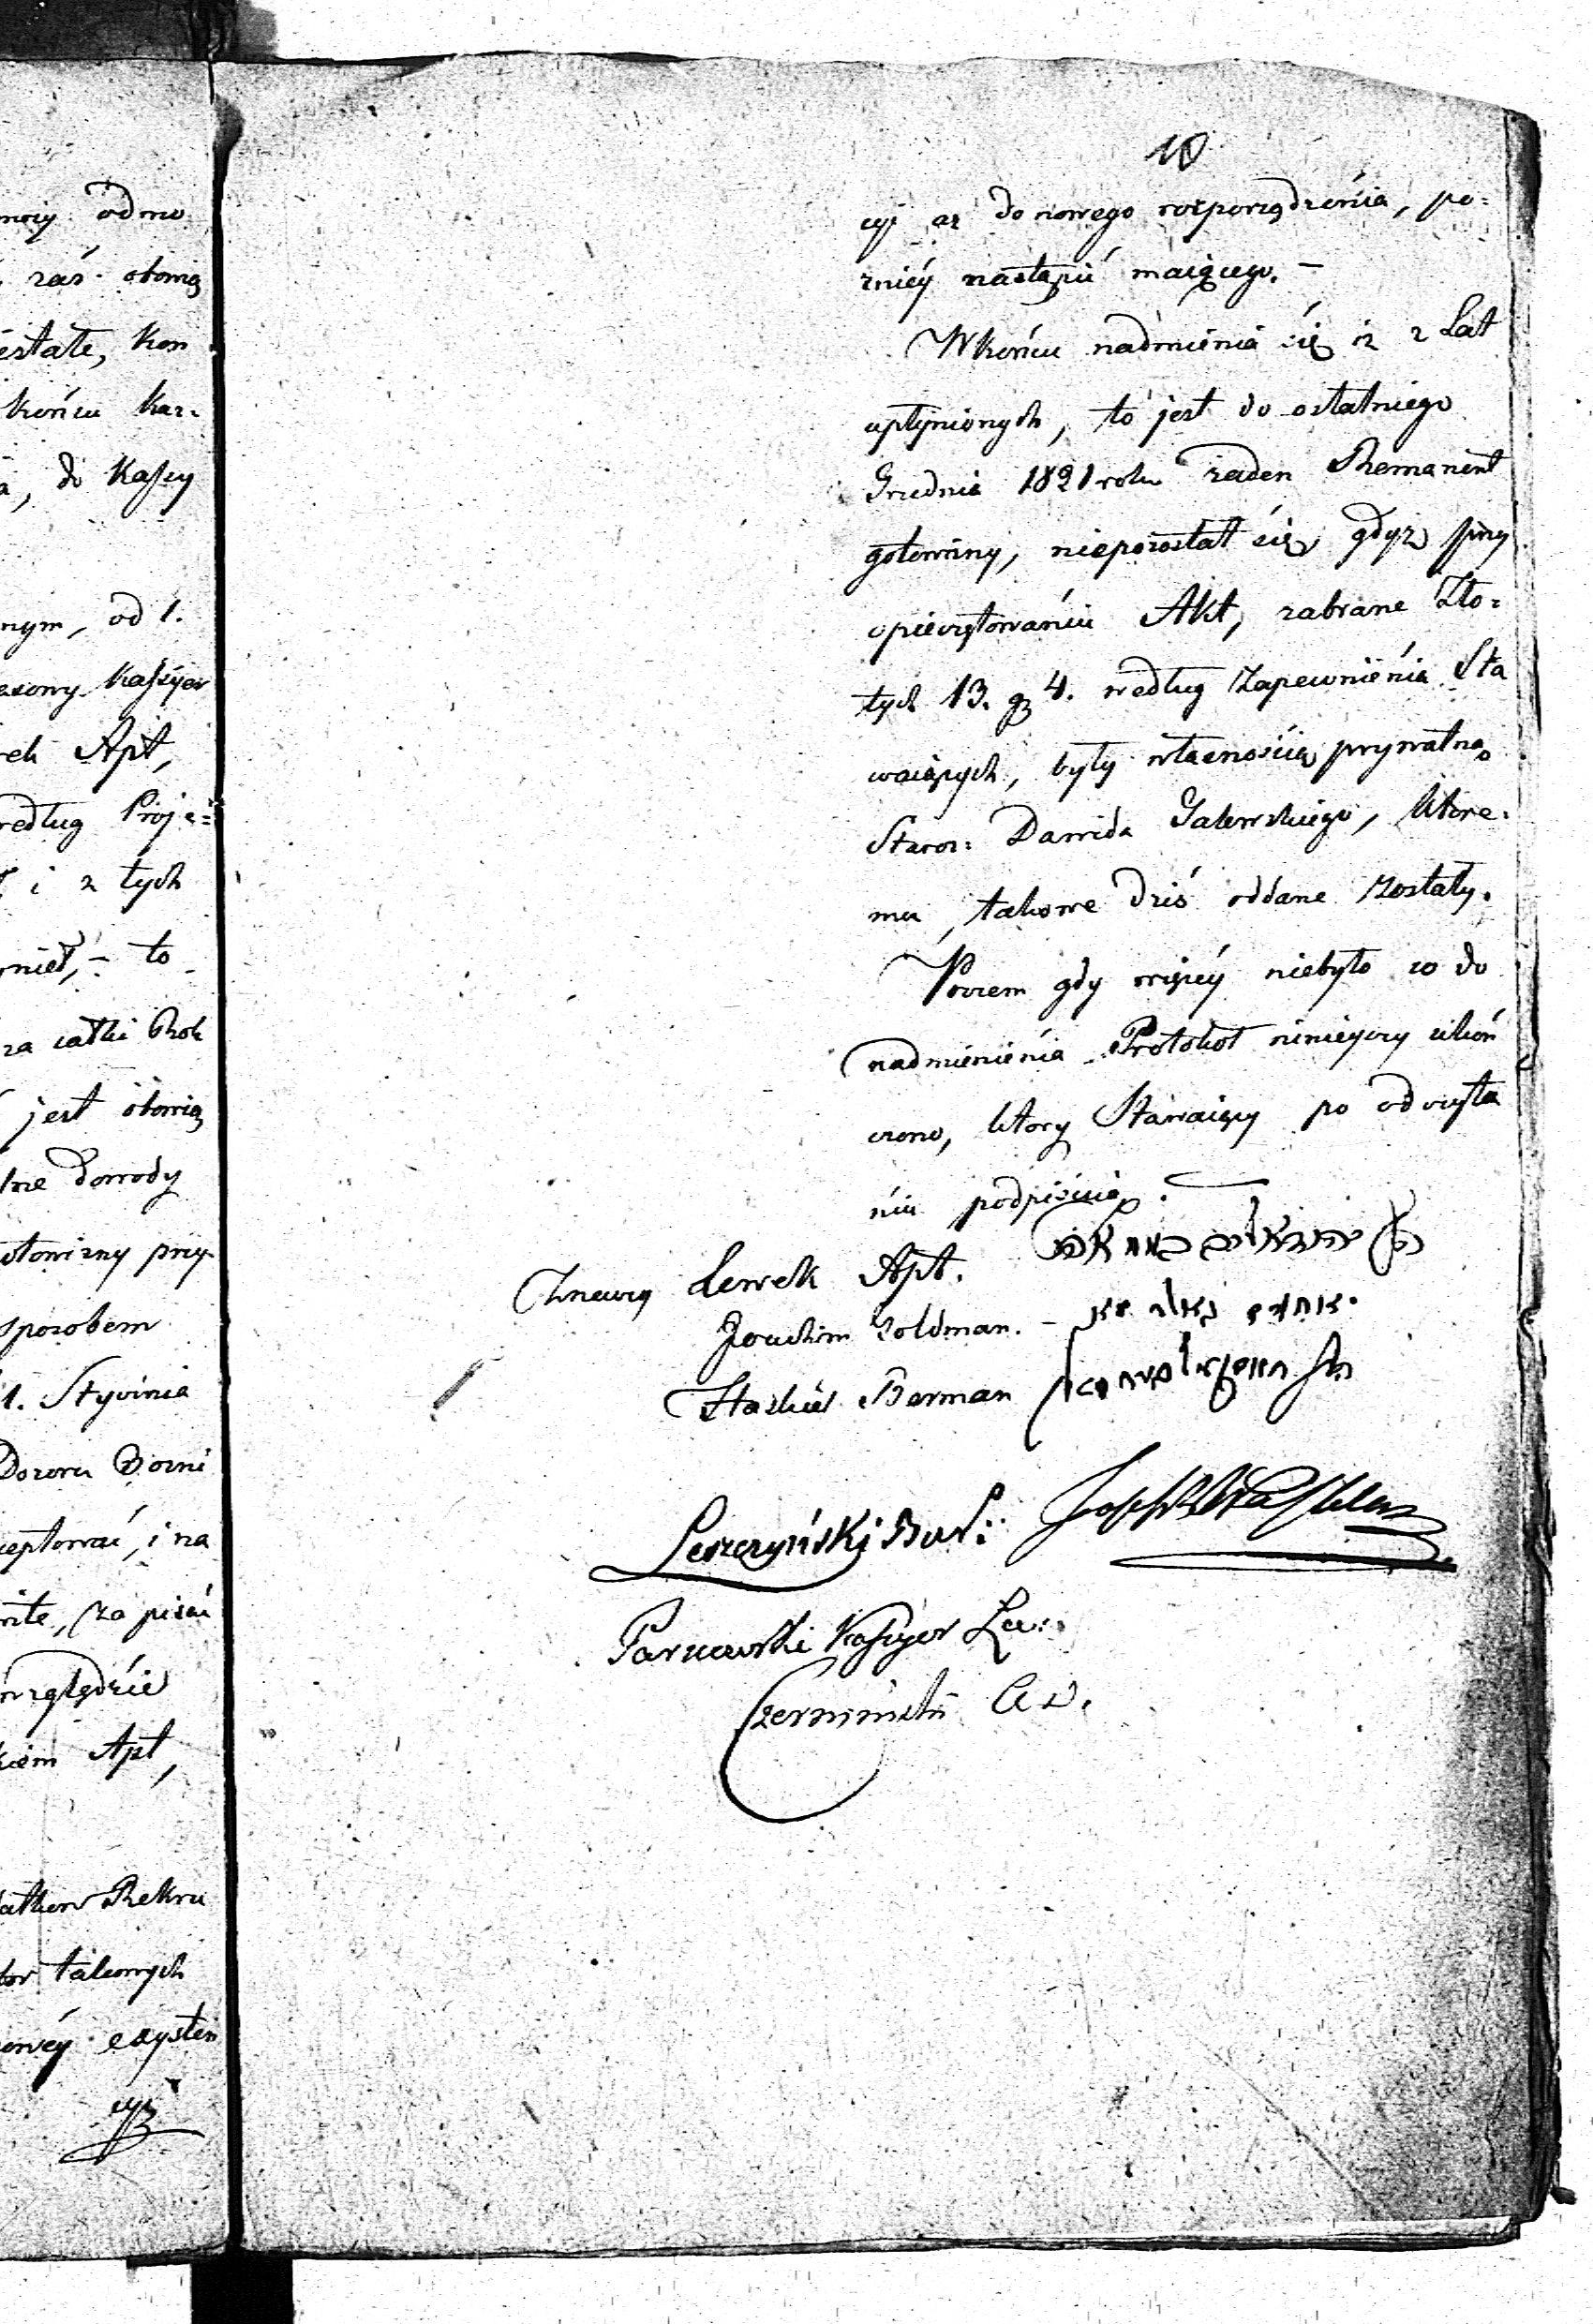 mocy odmo
zaś obowią
estate, Kon
końcu kaz-
a, do Kassy
nym, od 1.
Kassyer
Apt,
według Proje=
i z tych
to
za całki Rok
jest obowią
lne Dowody
otowizny przy
sposobem
1. Stycznia
Dozoru Bożni
ceptować, i na
zapisać
względzie
kiem Apt,
Rekru
takowych
owéy exysten
cyi
10
cyi aż do nowego rozporządzénia, po=
zniéy nastąpić maiącego. –
Wkońcu nadmienia się iż z Lat
upłynionych, to jest do ostatniego
Grudnia 1821 roku żaden Remanent
gotowizny, niepozostał się, gdyż przy
opieczętowaniu Akt, zabrane Zło=
tych 13. gr 4. według Zapewniénia Sta
waiących, były własnością prywatną
Staroz: Dawida Galewskiego, które=
mu, takowe dziś oddane zostały.
Poczem gdy więcéy niebyło co do
nadmieniénia Protokół ninieyszy zakoń
czono, który Stawaiący po odczyta
niu podpisuią.
Lewek Apt.
Joachim Goldman. –
Haskiel Berman
Leszczyński Bur:
Kassyer
Czermiński